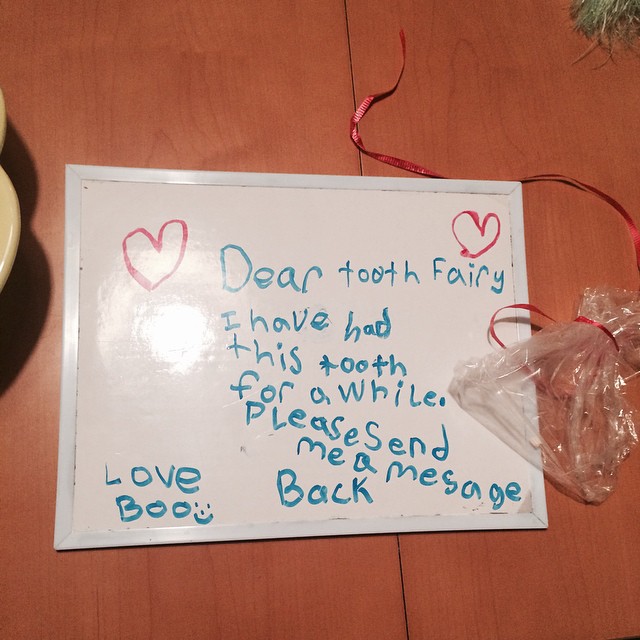 Dear tooth Fairy
I have had
this tooth
for a while.
Please send
me a mesage
Back
Love
Boo